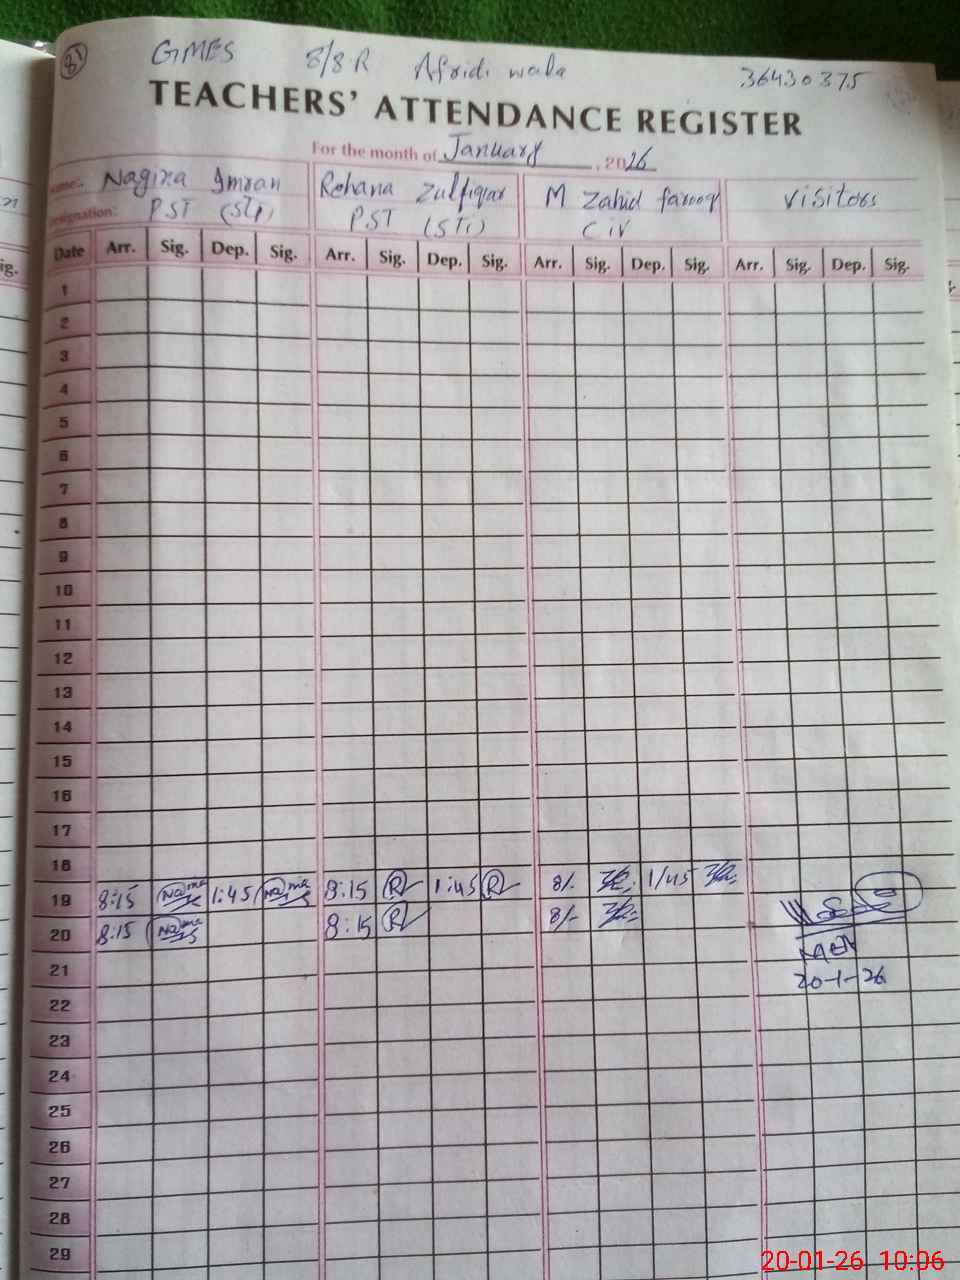 81 GMES 8/8R Afridi wala 36430375
TEACHERS' ATTENDANCE REGISTER
For the month of January, 2026
Name: Nagina Imran Rehana Zulfiqar M Zahid farooq Visitors
Designation: PST (STI) PST (STI) C iv
Date Arr. Sig. Dep. Sig. Arr. Sig. Dep. Sig. Arr. Sig. Dep. Sig. Arr. Sig. Dep. Sig.
1
2
3
4
5
6
7
8
9
10
11
12
13
14
15
16
17
18
19 8:15 1:45 8:15 R 1:45 R 8/- 1/45
20 8:15 8:15 R 8/-
20-1-26
21
22
23
24
25
26
27
28
29
20-01-26 10:06